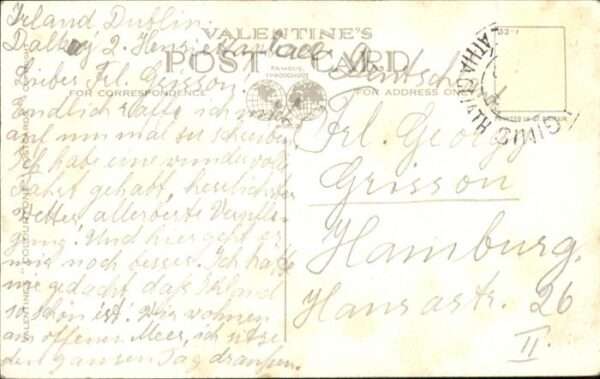 Irland Dublin.
Dalkey 2.
Lieber Frl. Grisson!
Endlich raffe ich mich
auf um mal zu schreiben
Ich habe eine wundervolle
Fahrt gehabt, herrlichstes
Wetter, allerbeste Verpfle-
gung! Und hier geht es
mir noch besser. Ich hätte
nie gedacht daß Irland
so schön ist! Wir wohnen
am offenen Meer, ich sitze
den ganzen Tag draußen.
VALENTINE'S
POST CARD
FAMOUS
THROUGHOUT
FOR CORRESPONDENCE
FOR ADDRESS ONLY
Frl. Georgy
Grisson
Hamburg.
Hansastr. 26
II.